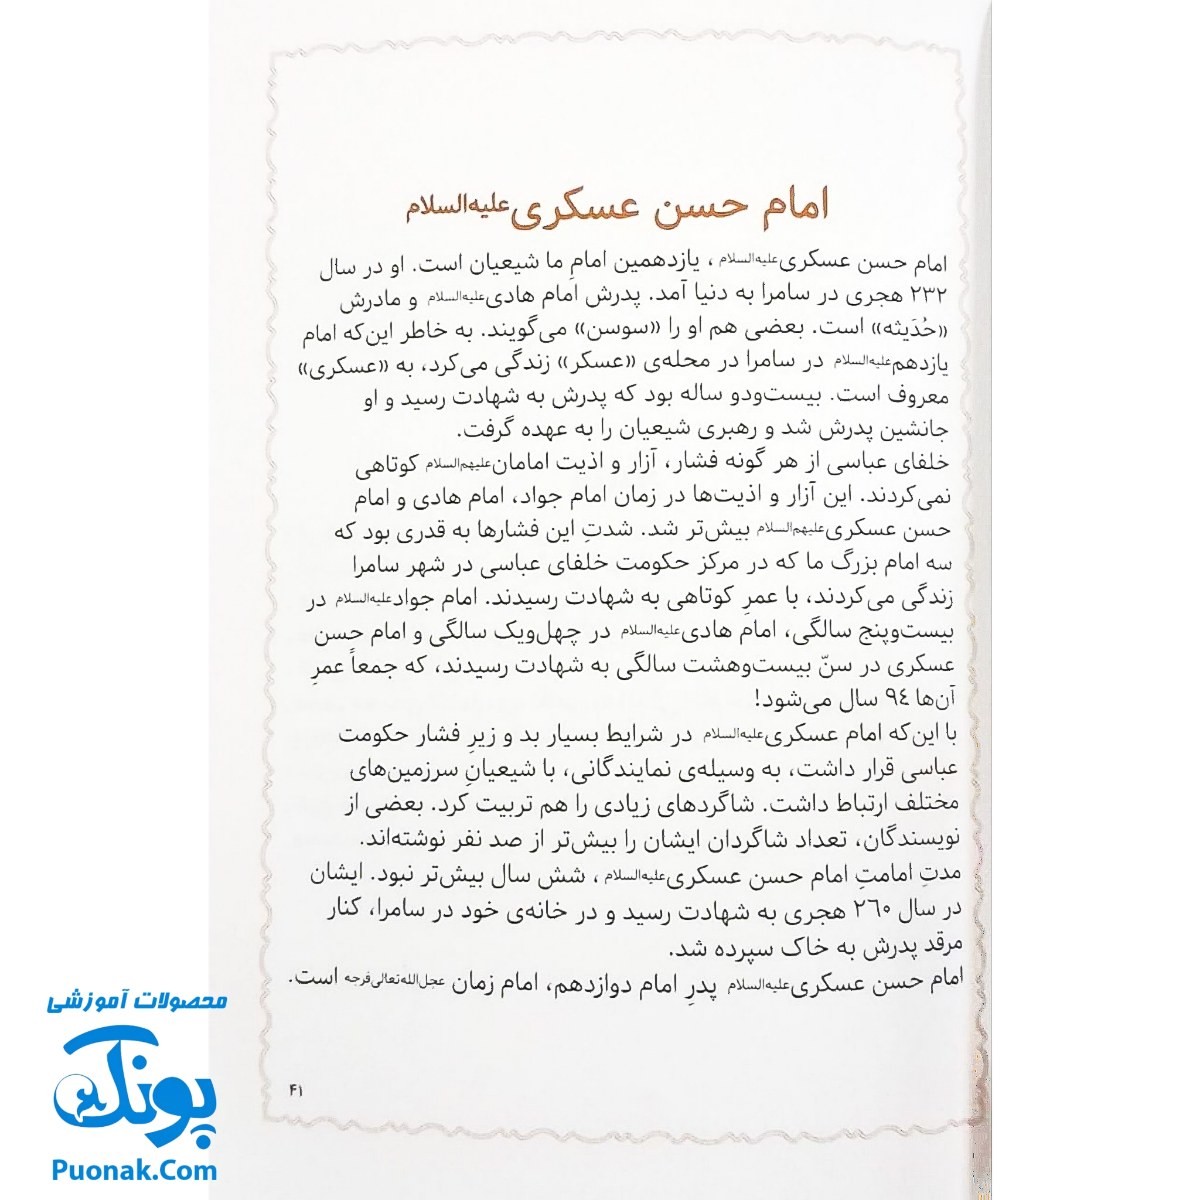 امام حسن عسکری علیه‌السلام
امام حسن عسکری علیه‌السلام، یازدهمین امامِ ما شیعیان است. او در سال
۲۳۲ هجری در سامرا به دنیا آمد. پدرش امام هادی علیه‌السلام و مادرش
«حُدَیثه» است. بعضی هم او را «سوسن» می‌گویند. به خاطر این‌که امام
یازدهم علیه‌السلام در سامرا در محله‌ی «عسکر» زندگی می‌کرد، به «عسکری»
معروف است. بیست‌ودو ساله بود که پدرش به شهادت رسید و او
جانشین پدرش شد و رهبری شیعیان را به عهده گرفت.
خلفای عباسی از هر گونه فشار، آزار و اذیت امامان علیهم‌السلام کوتاهی
نمی‌کردند. این آزار و اذیت‌ها در زمان امام جواد، امام هادی و امام
حسن عسکری علیهم‌السلام بیش‌تر شد. شدتِ این فشارها به قدری بود که
سه امام بزرگ ما که در مرکز حکومت خلفای عباسی در شهر سامرا
زندگی می‌کردند، با عمرِ کوتاهی به شهادت رسیدند. امام جواد علیه‌السلام در
بیست‌وپنج سالگی، امام هادی علیه‌السلام در چهل‌ویک سالگی و امام حسن
عسکری در سنّ بیست‌وهشت سالگی به شهادت رسیدند، که جمعاً عمرِ
آن‌ها ۹٤ سال می‌شود!
با این‌که امام عسکری علیه‌السلام در شرایط بسیار بد و زیرِ فشار حکومت
عباسی قرار داشت، به وسیله‌ی نمایندگانی، با شیعیانِ سرزمین‌های
مختلف ارتباط داشت. شاگردهای زیادی را هم تربیت کرد. بعضی از
نویسندگان، تعداد شاگردان ایشان را بیش‌تر از صد نفر نوشته‌اند.
مدتِ امامتِ امام حسن عسکری علیه‌السلام، شش سال بیش‌تر نبود. ایشان
در سال ۲٦۰ هجری به شهادت رسید و در خانه‌ی خود در سامرا، کنار
مرقد پدرش به خاک سپرده شد.
امام حسن عسکری علیه‌السلام پدرِ امام دوازدهم، امام زمان عجل‌الله‌تعالی‌فرجه است.
۴۱
محصولات آموزشی
پونک
Puonak.Com